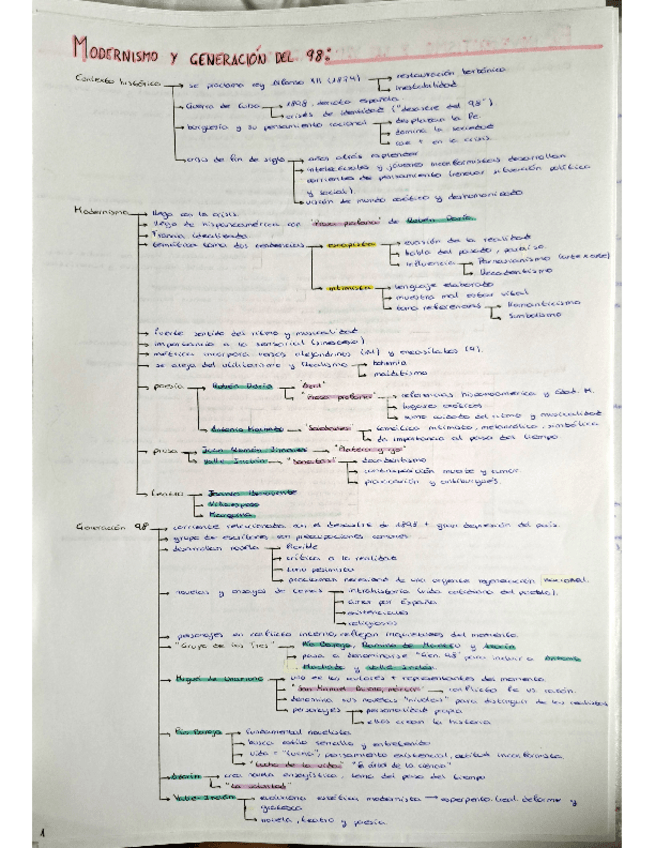 MODERNISMO Y GENERACIÓN DEL 98:
Contexto histórico → se proclama rey Alfonso XII (1874) → restauración borbónica
→ inestabilidad
→ Guerra de Cuba → 1898, derrota española
→ crisis de identidad ("desastre del 98")
→ burguesía y su pensamiento racional → desplazan la fe
→ domina la sociedad
→ cae en la crisis
→ crisis de fin de siglo → años atrás esplendor
→ intelectuales y jóvenes inconformistas desarrollan
corrientes de pensamiento (renovar situación política
y social).
→ visión de mundo caótico y deshumanizado
Modernismo → llega con la crisis
→ llega de hispanoamérica con "Prosas profanas" de Rubén Darío
→ Francia idealizada
→ temática toma dos tendencias → escapista → evasión de la realidad
→ habla del pasado, paraíso
→ influencia → Parnasianismo (arte x arte)
→ Decadentismo
→ intimista → lenguaje elaborado
→ muestra mal estar vital
→ toma referencias → Romanticismo
→ Simbolismo
→ fuerte sentido del ritmo y musicalidad
→ importancia a lo sensorial (sinestesia)
→ métrica: incorpora versos alejandrinos (14) y eneasílabos (9).
→ se aleja del utilitarismo y idealismo → bohemia
→ malditismo
→ poesía → Rubén Darío → "Azul"
→ "Prosas profanas" → referencias hispanoamérica y Edad M.
→ lugares exóticos
→ sumo cuidado del ritmo y musicalidad
→ Antonio Machado → "Soledades" → temática intimista, melancólica, simbólica
→ da importancia al paso del tiempo
→ prosa → Juan Ramón Jiménez → "Platero y yo"
→ Valle Inclán → "Sonatas" → decadentismo
→ contraposición muerte y amor.
→ provocación y antiburgués.
→ Jacinto Benavente
→ Villaespesa
→ Marquina
Generación 98 → corriente relacionada con el desastre de 1898 + gran depresión del país.
→ grupo de escritores con preocupaciones comunes
→ desarrollan novela → flexible
→ critican a la realidad
→ tono pesimista
→ proclaman necesidad de una urgente regeneración nacional.
→ novelas y ensayos de temas → intrahistoria (vida cotidiana del pueblo).
→ amor por España
→ existenciales
→ religiosos
→ personajes en conflicto interno, reflejan inquietudes del momento
→ "Grupo de los Tres" → Pío Baroja, Ramiro de Maeztu y Azorín
→ pasa a denominarse "Gen. 98" para incluir a Antonio
Machado y Valle Inclán
→ Miguel de Unamuno → uno de los autores + representantes del momento
→ "San Manuel Bueno, mártir" → conflicto fe vs. razón.
→ denomina sus novelas "nivolas" para distinguir de las realistas
→ personajes → personalidad propia
→ ellos crean la historia
→ Pío Baroja → fundamental novelista
→ busca estilo sencillo y entretenido
→ vida = "lucha", pensamiento existencial, actitud inconformista
→ "La lucha de la vida" "El árbol de la ciencia"
→ Azorín → crea novela ensayística, tema del paso del tiempo
→ "La voluntad"
→ Valle-Inclán → evoluciona estética modernista → esperpento: real. deforme y
grotesca
→ novela, teatro y poesía.
1